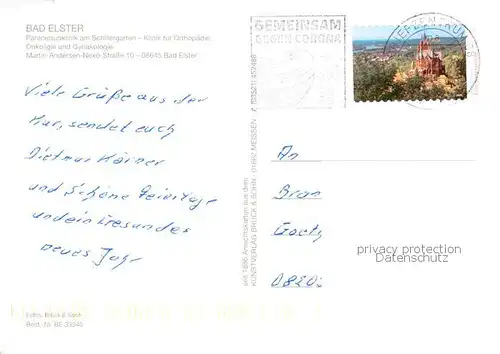 BAD ELSTER
Paracelsusklinik am Schillergarten – Klinik für Orthopädie,
Onkologie und Gynäkologie
Martin-Andersen-Nexö-Straße 10 – 08645 Bad Elster
GEMEINSAM
GEGEN CORONA
BRIEFZENTRUM
Viele Grüße aus der
Kur, sendet euch
Dietmar Körner
und schöne Feiertage
und ein Gesundes
neues Jahr
seit 1886 Ansichtskarten aus dem
KUNSTVERLAG BRÜCK & SOHN · 01662 MEISSEN
An
Goetz
privacy protection
Datenschutz
Fotos: Brück & Sohn
Best.-Nr. BE